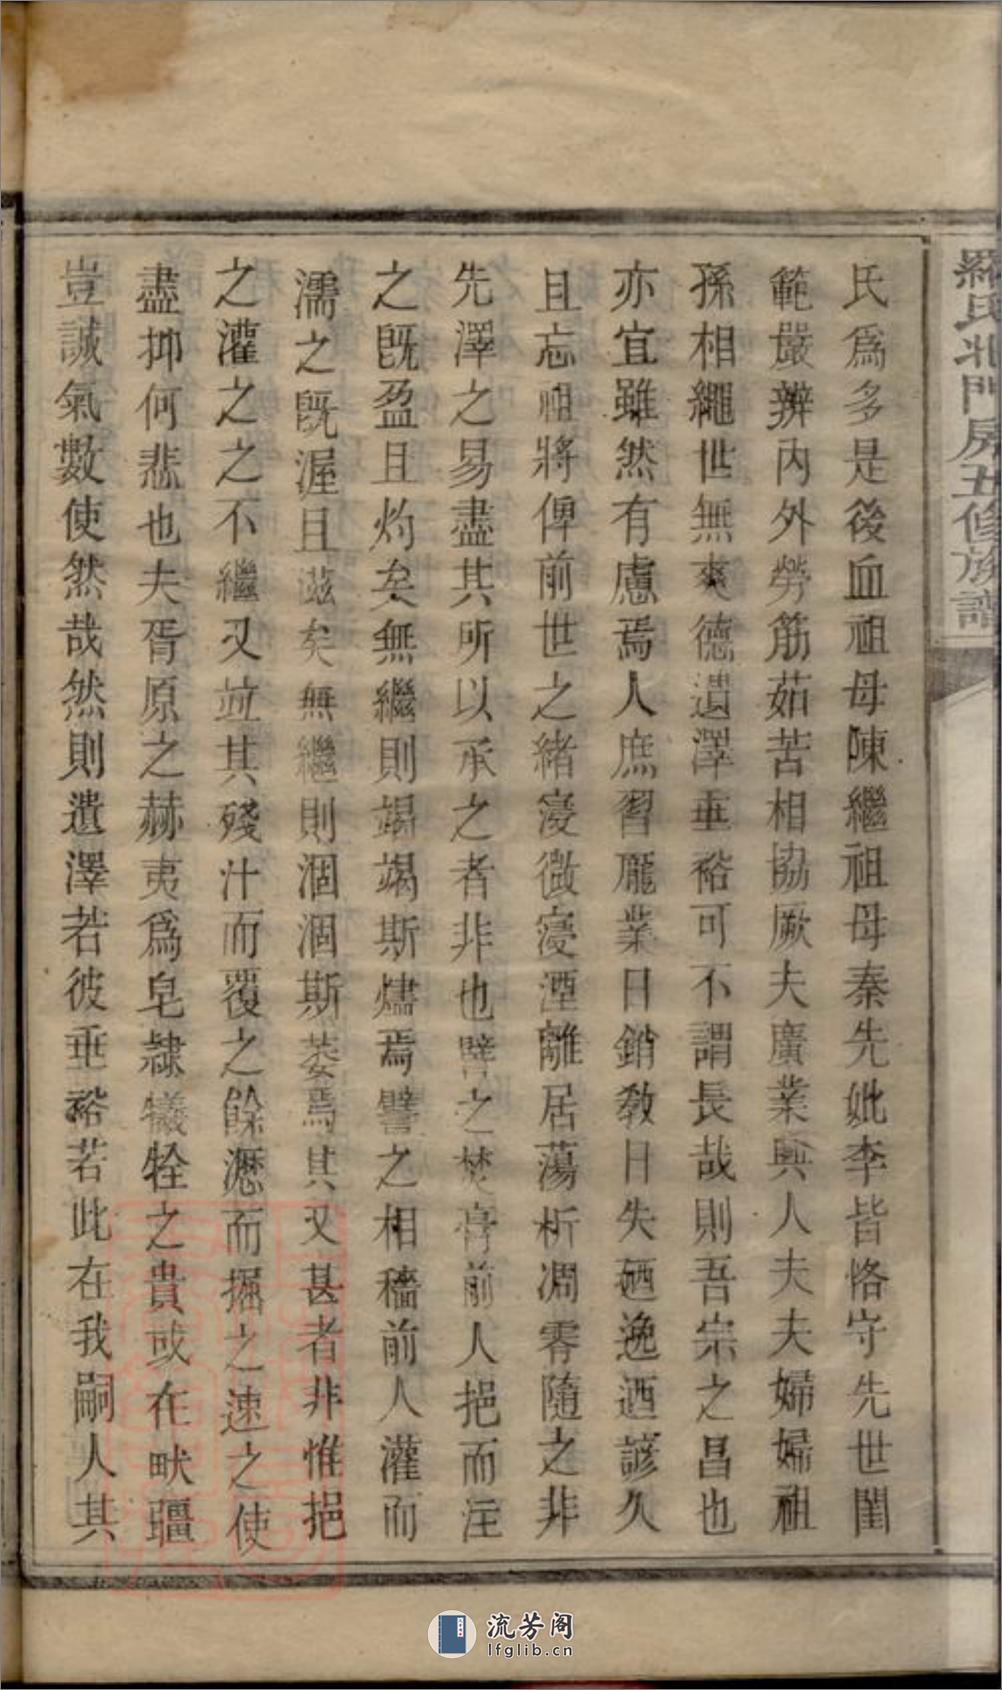 羅氏北門房五修族譜
氏爲多是後血祖母陳繼祖母秦先妣李皆恪守先世閨
範嚴辨内外勞筋茹苦相協厥夫廣業興人夫夫婦婦祖
孫相繩世無爽德遺澤垂裕可不謂長哉則吾宗之昌也
亦宜雖然有慮焉人庶習龐業日銷教日失廼逸廼諺久
且忘祖將俾前世之緒寖微寖湮離居蕩析凋零隨之非
先澤之易盡其所以承之者非也譬之焚膏前人挹而注
之旣盈且灼矣無繼則竭竭斯燼焉譬之相穡前人灌而
濡之旣渥且滋矣無繼則涸涸斯萎焉其又甚者非惟挹
之灌之之不繼又竝其殘汁而覆之餘瀝而掘之速之使
盡抑何悲也夫胥原之赫夷爲皂隸犧牷之貴或在畎疆
豈誠氣數使然哉然則遺澤若彼垂裕若此在我嗣人其
流芳阁
lfglib.cn